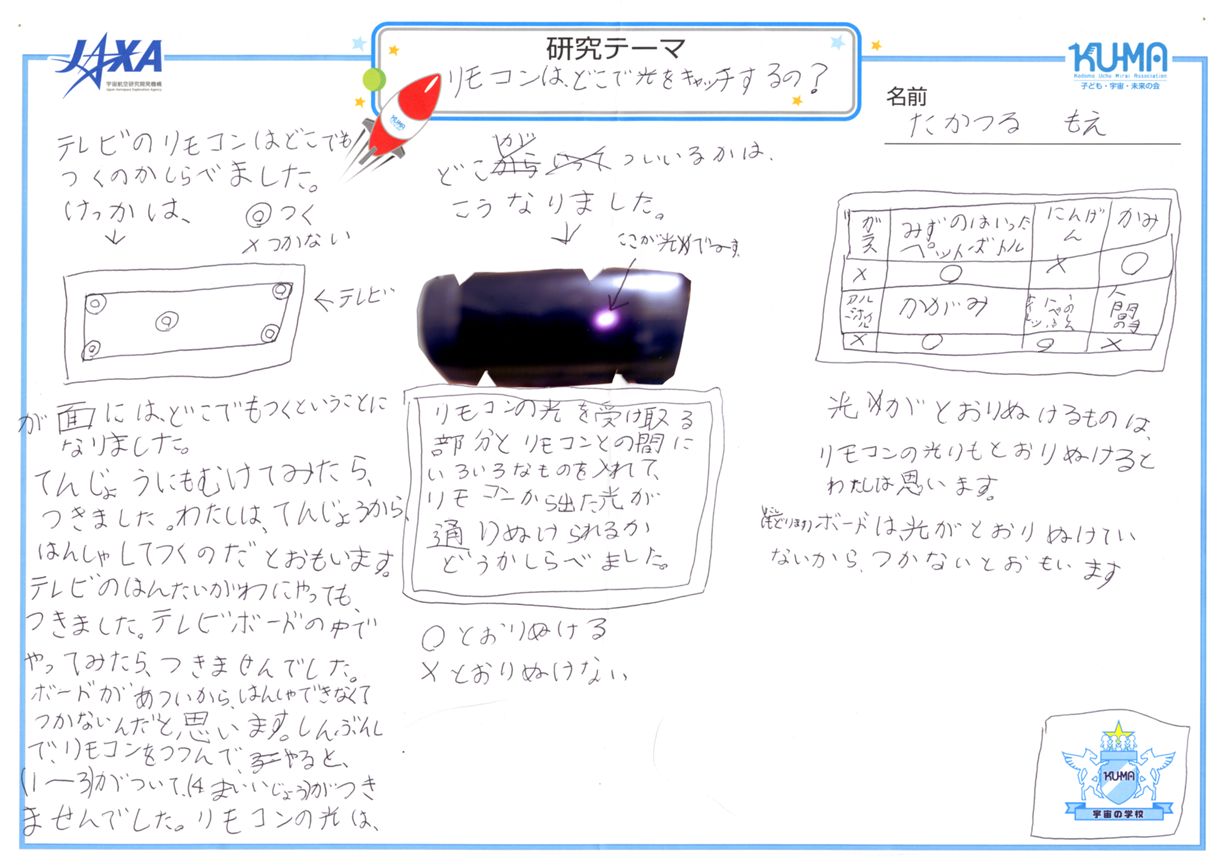 JAXA
宇宙航空研究開発機構
Japan Aerospace Exploration Agency
研究テーマ
リモコンは、どこで光をキャッチするの？
KUMA
KUMA
Kodomo Uchu Mirai Association
子ども・宇宙・未来の会
名前
たかつる もえ
テレビのリモコンはどこでも
つくのかしらべました。
けっかは、
◎つく
×つかない
←テレビ
が面には、どこでもつくということに
なりました。
てんじょうにもむけてみたら、
つきました。わたしは、てんじょうから、
はんしゃしてつくのだとおもいます。
テレビのはんたいがわにやっても、
つきました。テレビボードの中で
やってみたら、つきませんでした。
ボードがあついから、はんしゃできなくて
つかないんだと思います。しんぶんし
で、リモコンをつつんで、やると、
(1〜3)がついて、(4まいいじょう)がつき
ませんでした。リモコンの光は、
どこが ついいるかは、
こうなりました。
ここが光りめでーす。
リモコンの光を受け取る
部分とリモコンとの間に
いろいろなものを入れて、
リモコンから出た光が
通りぬけられるか
どうかしらべました。
○とおりぬける
×とおりぬけない
ガラス みずのはいったペットボトル にんげん かみ
× ○ × ○
アルミホイル かがみ 人間の手
× ○ ○ ×
光りがとおりぬけるものは、
リモコンの光りもとおりぬけると
わたしは思います。
ボードは、光がとおりぬけてい
ないから、つかないとおもいます
KUMA
宇宙の学校